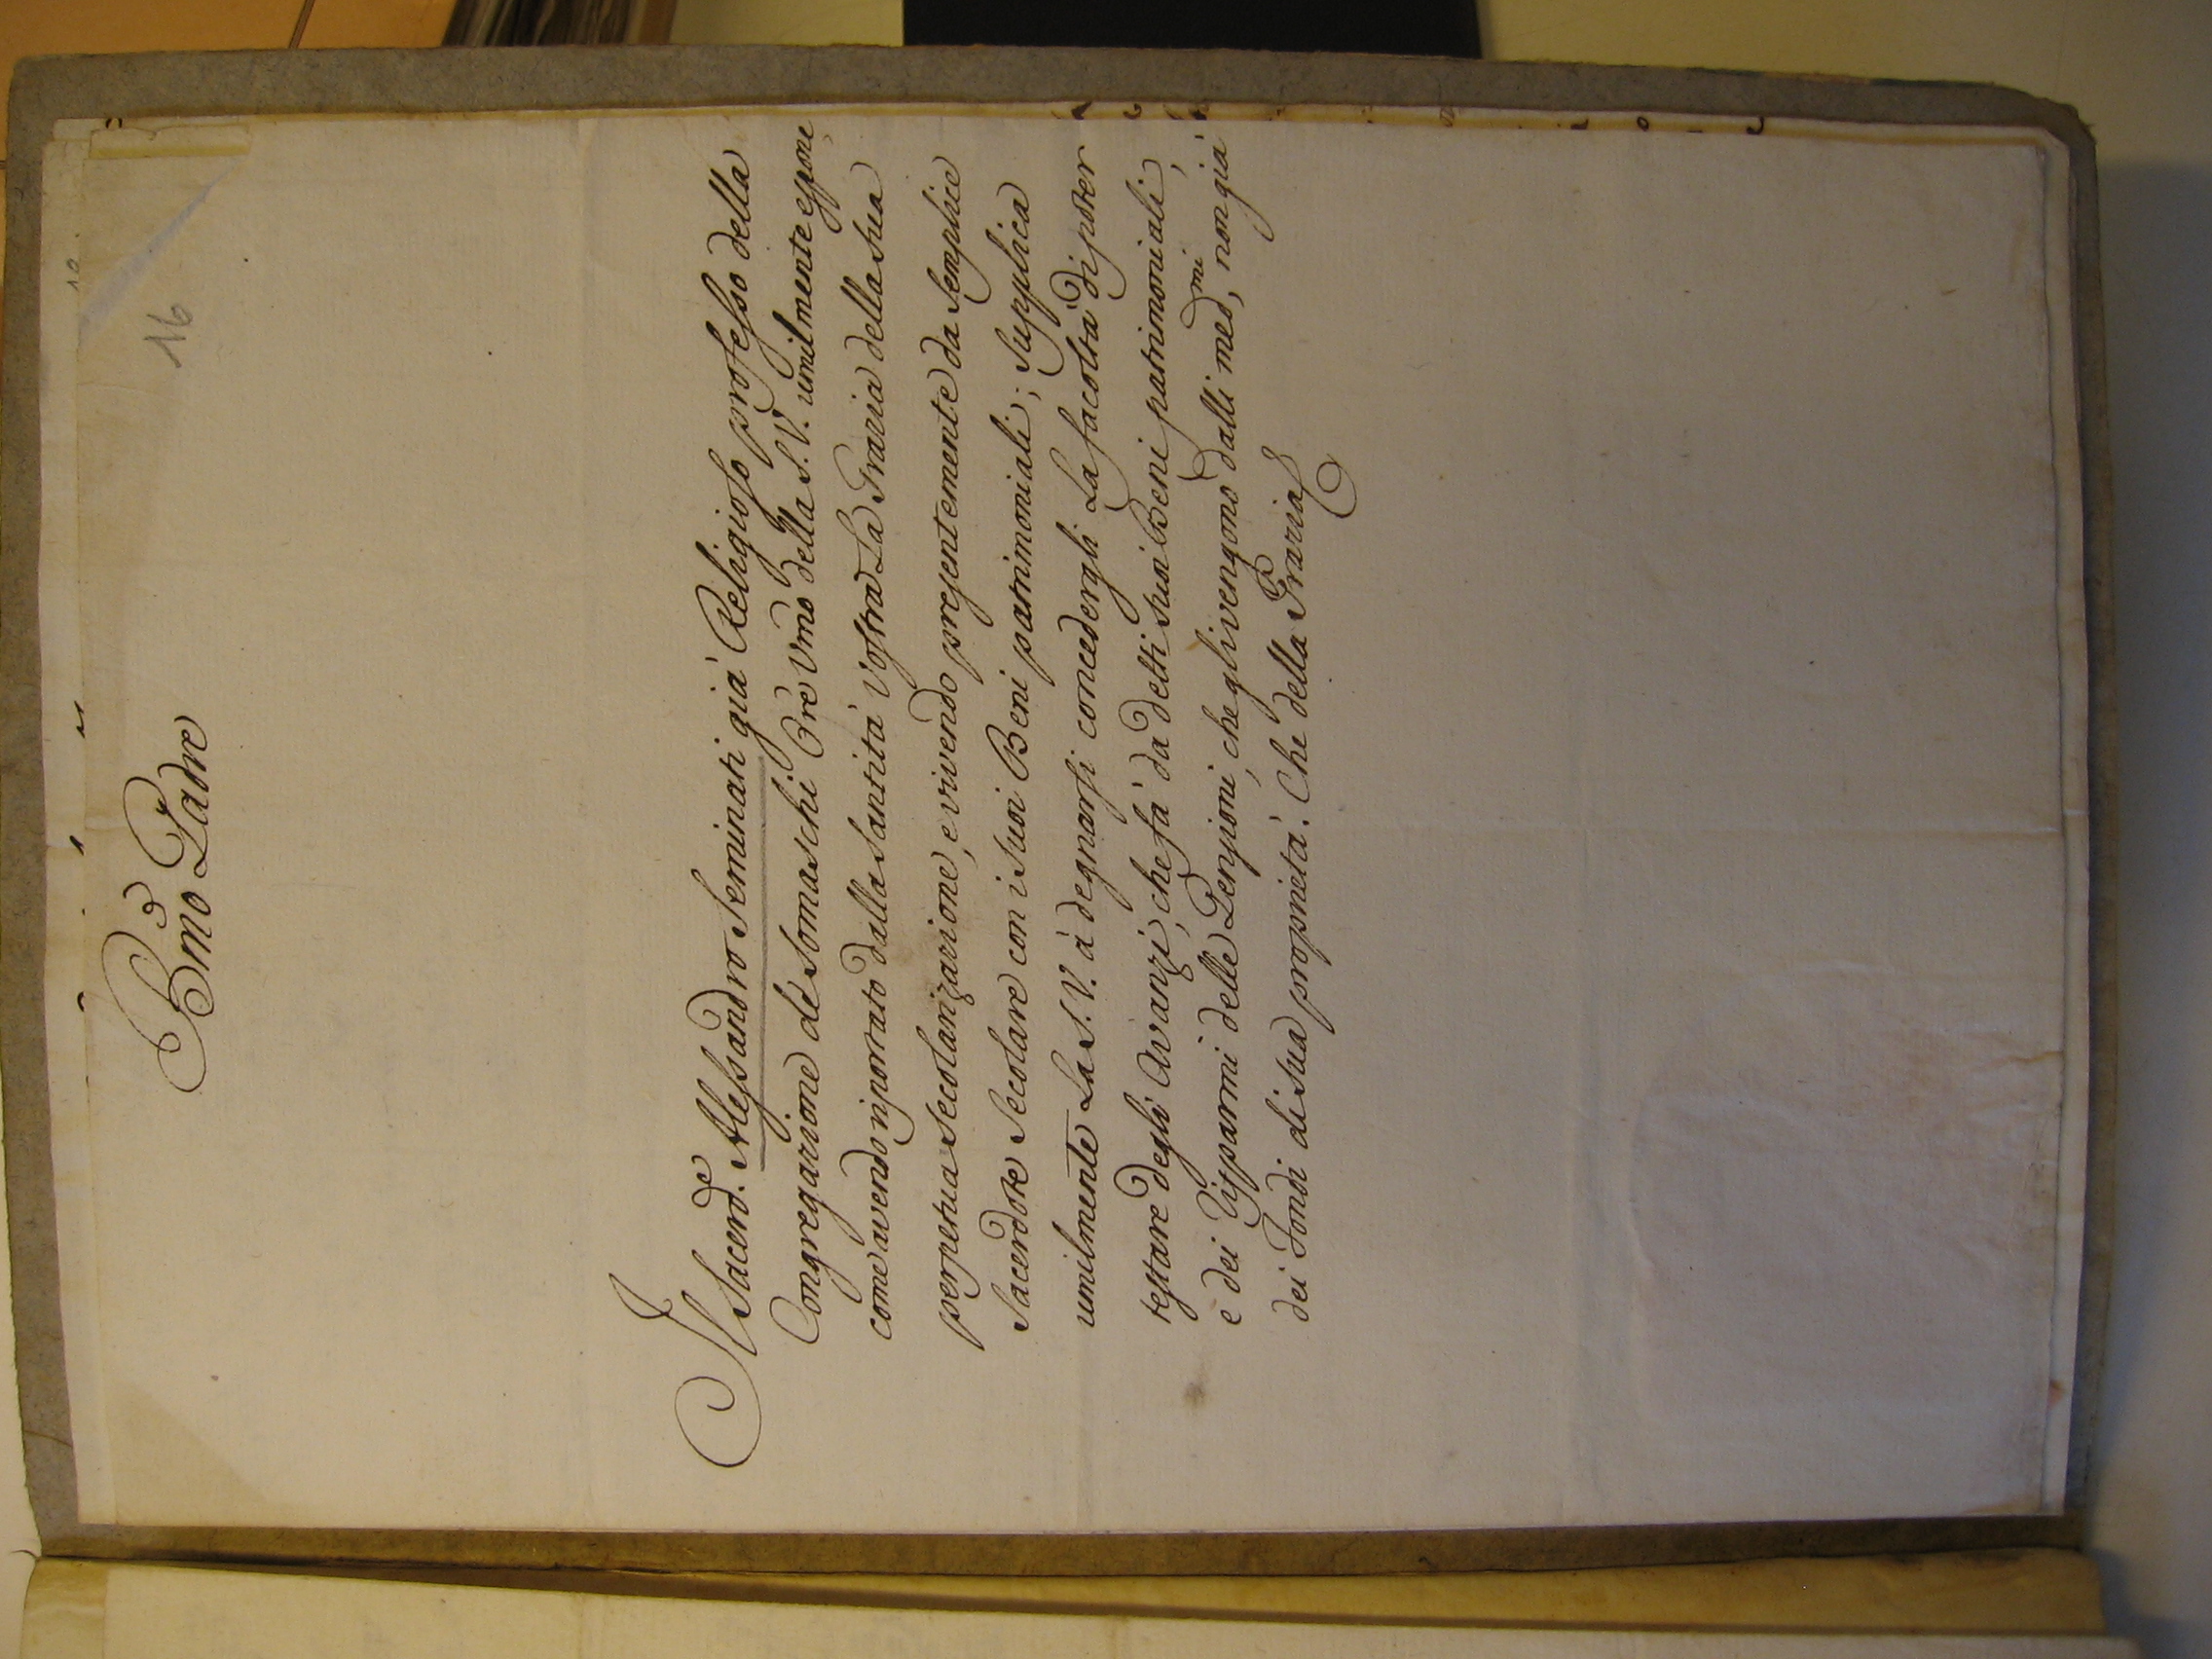 16
Bmo Padre
Il Sacerd.e Alessandro Seminati già Religioso professo della
Congregazione de Somaschi Ore Umo della S.V. umilmente espone,
come avendo riportato dalla Santità Vostra La Grazia della sua
perpetua secolarizazione, e vivendo presentemente da Semplice
Sacerdote Secolare con i suoi Beni patrimoniali; Supplica
umilmente La S.V. à degnarsi concedergli La facoltà di poter
testare degli Avanzi, che fà da detti suoi Beni patrimoniali,
e dei Risparmi delle Pensioni, che gli vengono dalli med.mi, non già
dei Fondi di sua proprietà. Che della Grazia